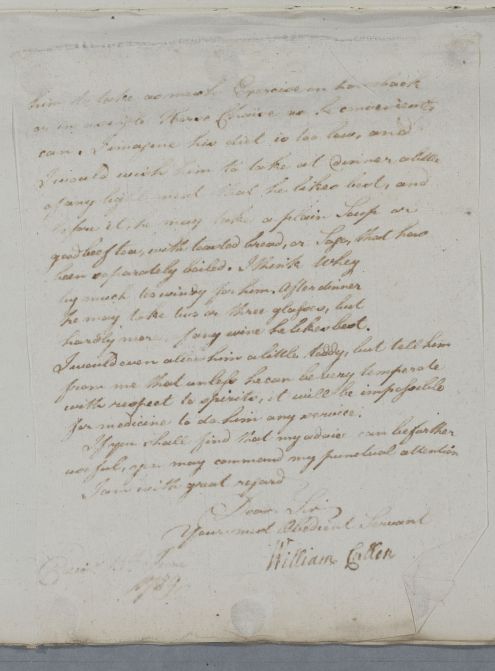 him to take as much Exercise on horseback
or in a single Horse Chaise as he conveniently
can. I imagine his diet is too low, and
I would wish him to take at dinner a little
of any light meat that he likes best, and
before it, he may take a plain Soup or
good beef tea, with toasted bread, or Sago, that has
been separately boiled. I think Whey
by much too windy for him. After dinner
he may take two or three glasses, but
hardly more, of any wine he likes best.
I would even allow him a little toddy, but tell him
from me that unless he can be very temperate
with respect to spirits, it will be impossible
for medicine to do him any service.
If you shall find that my advice can be farther
useful, you may command my punctual attention
I am with great regard
Dear Sir
Your most Obedient Servant
William Cullen
1789